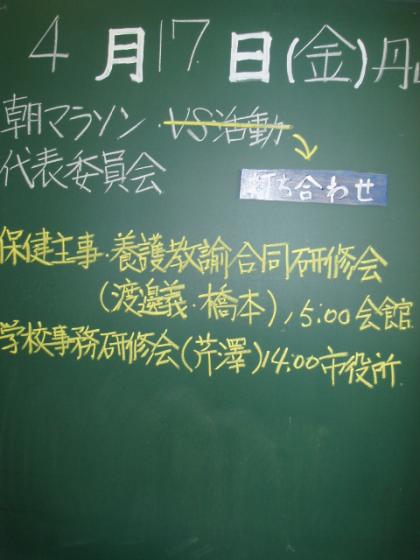 4月17日(金)丹
朝マラソン VS活動
代表委員会 打ち合わせ
保健主事・養護教諭合同研修会
(渡邉義・橋本)15:00会館
学校事務研修会(芹澤)14:00市役所